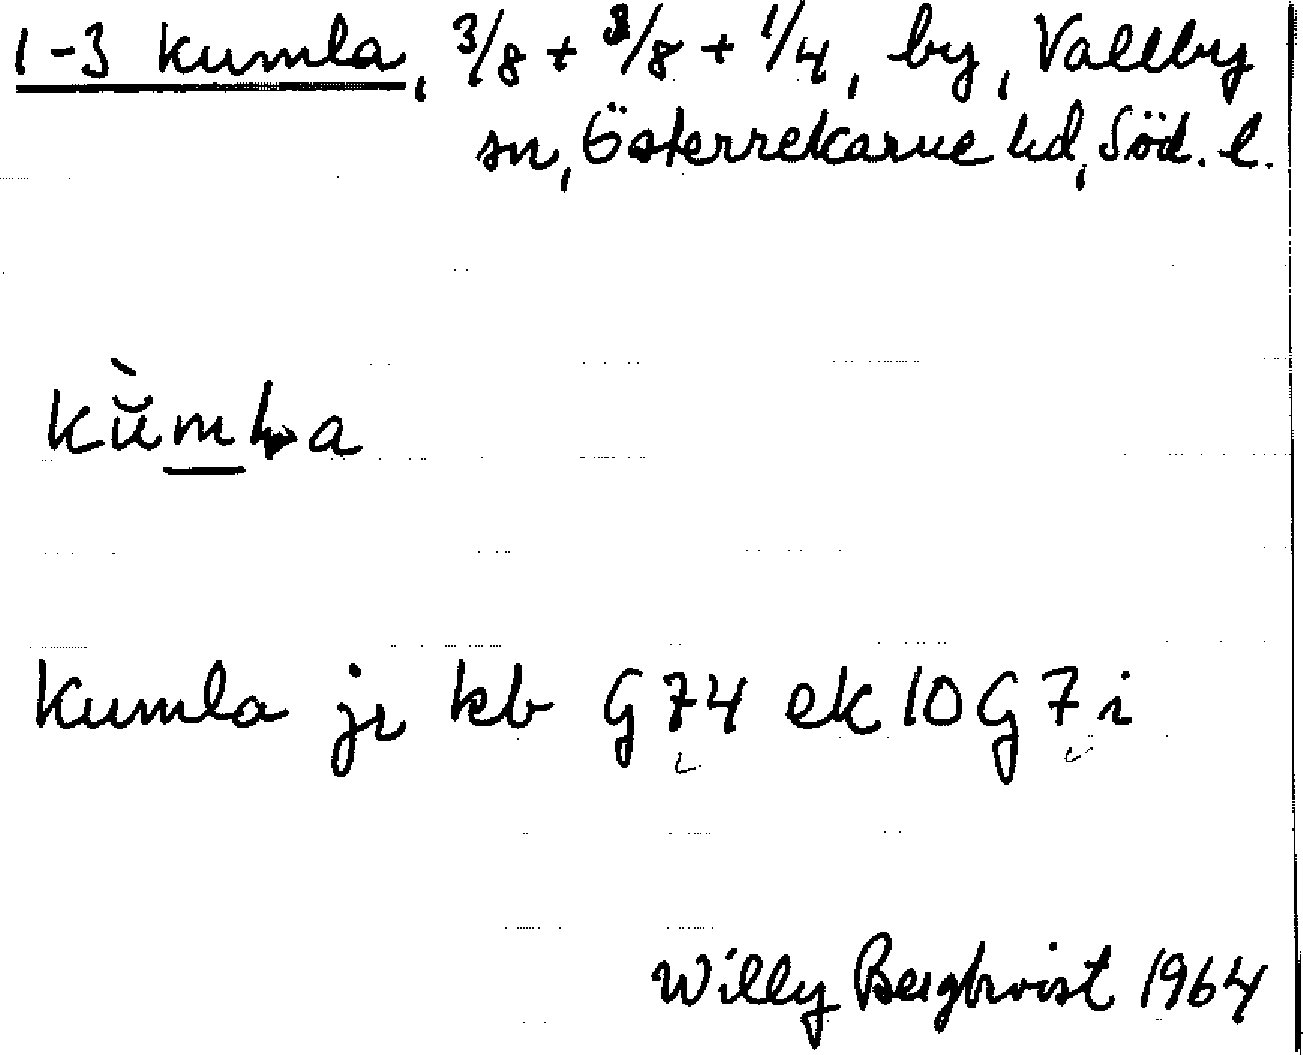 1-3 Kumla, 3/8 + 3/8 + 1/4, by, Vallby
sn, Österrekarne hd, Söd. l.
Kumla jr kb G74 ek 10G7i
Willy Bergkvist 1964